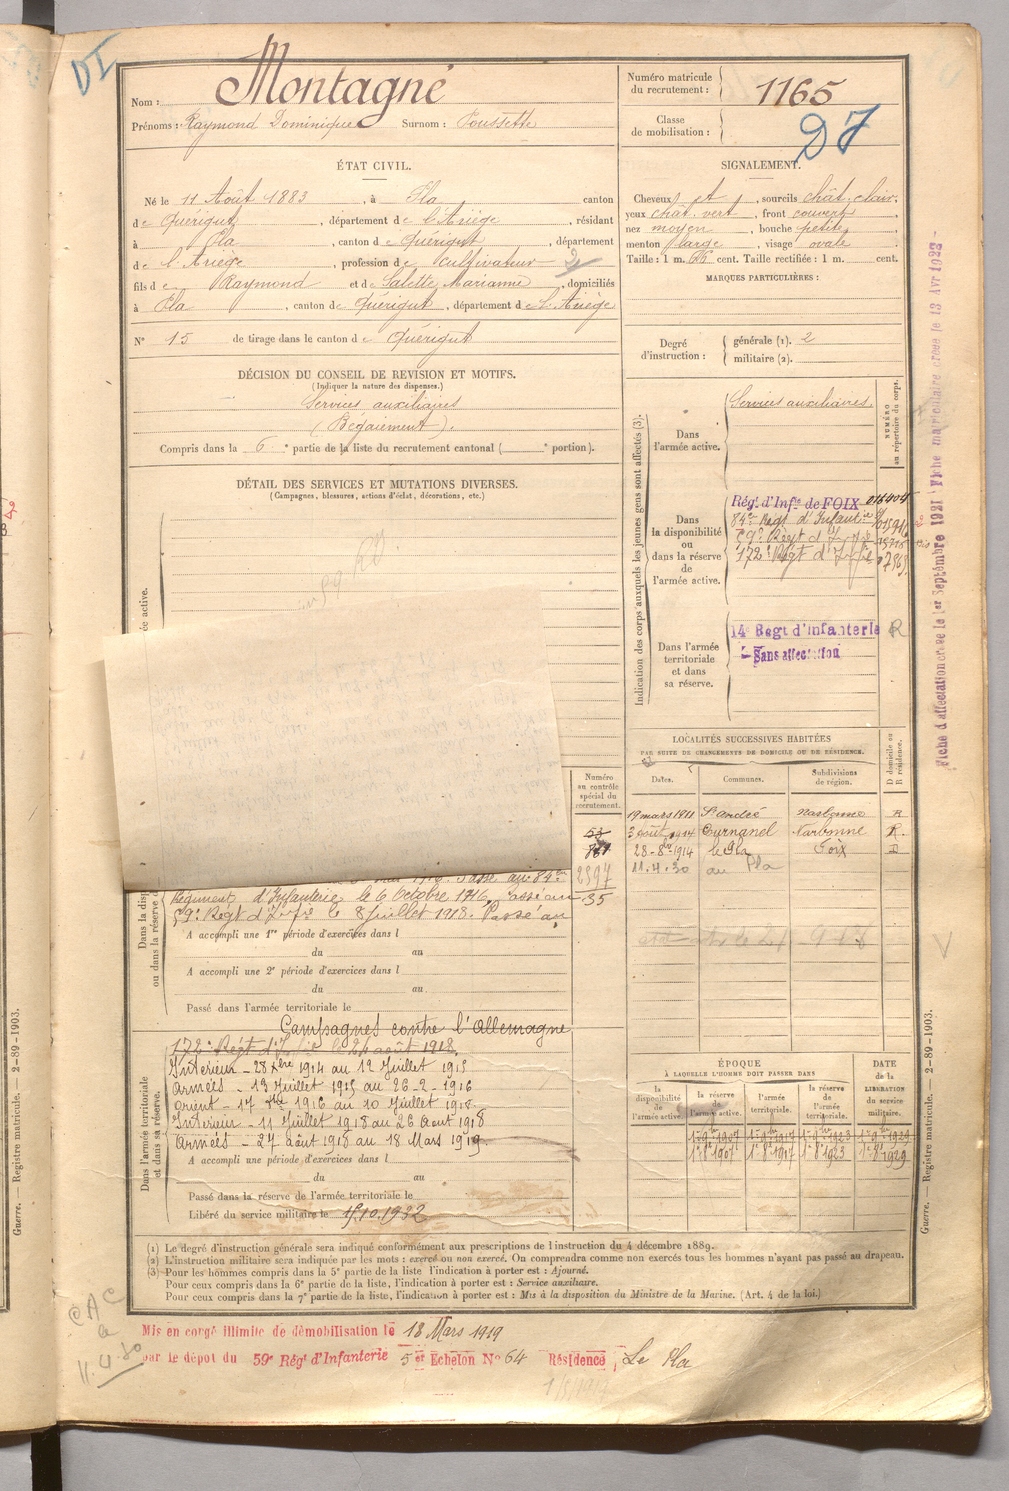 DI
Nom : Montagné
Prénoms : Raymond Dominique Surnom : Poussette
Numéro matricule du recrutement : 1165
Classe de mobilisation :
D 7
ÉTAT CIVIL.
Né le 11 Août 1883, à Pla canton
de Quérigut, département de l'Ariège, résidant
à Pla, canton de Quérigut, département
de l'Ariège, profession de cultivateur
fils de Raymond et de Salette Marianne, domiciliés
à Pla, canton de Quérigut, département de l'Ariège
N° 15 de tirage dans le canton de Quérigut
DÉCISION DU CONSEIL DE REVISION ET MOTIFS.
(Indiquer la nature des dispenses.)
Services auxiliaires
(Bégaiement).
Compris dans la 6e partie de la liste du recrutement cantonal ( e portion).
DÉTAIL DES SERVICES ET MUTATIONS DIVERSES.
(Campagnes, blessures, actions d'éclat, décorations, etc.)
SIGNALEMENT.
Cheveux et, sourcils chât. clair,
yeux chât. vert, front couvert,
nez moyen, bouche petite,
menton large, visage ovale
Taille : 1 m. cent. Taille rectifiée : 1 m. cent.
MARQUES PARTICULIÈRES :
Degré d'instruction :
générale (1). 2
militaire (2).
Indication des corps auxquels les jeunes gens sont affectés (3).
NUMÉRO au répertoire du corps.
Dans l'armée active.
Services auxiliaires.
Dans la disponibilité ou dans la réserve de l'armée active.
Régt d'Infie de FOIX 016404
84e Régt d'Infanterie
59e Régt d'Infie
172e Régt d'Infie
Dans l'armée territoriale et dans sa réserve.
14e Regt d'infanterie R
Sans affectation
Fiche d'affectation creee le 1er Septembre 1921 Fiche matriculaire creee le 13 Avr 1923
LOCALITÉS SUCCESSIVES HABITÉES
PAR SUITE DE CHANGEMENTS DE DOMICILE OU DE RÉSIDENCE.
Dates. Communes. Subdivisions de région. D domicile ou R résidence.
19 mars 1911 St André Narbonne R
3 août 1914 Curnanel Narbonne R.
28-8bre 1914 le Pla Foix D
11.4.30 au Pla
Numéro au contrôle spécial du recrutement.
2397
35
Passé au 84e
Régiment d'Infanterie le 6 Octobre 1916, passé au
59e Régt d'Infie le 8 Juillet 1918. Passé au
A accompli une 1re période d'exercices dans l
du au
A accompli une 2e période d'exercices dans l
du au
Passé dans l'armée territoriale le
Campagnes contre l'Allemagne
172e Régt d'Infie le 24 août 1918.
Intérieur - 28 1914 au 12 Juillet 1915
Armées - 13 Juillet 1915 au 26-2-1916
Orient - 17 1916 au 10 Juillet 1918.
Intérieur - 11 Juillet 1918 au 26 Août 1918
Armées - 27 août 1918 au 18 Mars 1919.
A accompli une période d'exercices dans l
du au
Passé dans la réserve de l'armée territoriale le
Libéré du service militaire le 15.10.1932
Dans l'armée territoriale et dans sa réserve.
ÉPOQUE
À LAQUELLE L'HOMME DOIT PASSER DANS
DATE de la LIBÉRATION du service militaire.
la disponibilité de l'armée active. la réserve de l'armée active. l'armée territoriale. la réserve de l'armée territoriale.
(1) Le degré d'instruction générale sera indiqué conformément aux prescriptions de l'instruction du 4 décembre 1889.
(2) L'instruction militaire sera indiquée par les mots : exercé ou non exercé. On comprendra comme non exercés tous les hommes n'ayant pas passé au drapeau.
(3) Pour les hommes compris dans la 5e partie de la liste l'indication à porter est : Ajourné.
Pour ceux compris dans la 6e partie de la liste, l'indication à porter est : Service auxiliaire.
Pour ceux compris dans la 7e partie de la liste, l'indication à porter est : Mis à la disposition du Ministre de la Marine. (Art. 4 de la loi.)
Guerre. — Registre matricule. — 2-89-1903.
Guerre. — Registre matricule. — 2-89-1903.
Mis en congé illimité de démobilisation le 18 Mars 1919
par le dépot du 59e Régt d'Infanterie 5 er Echelon N° 64 Résidence, Le Pla
11.4.30